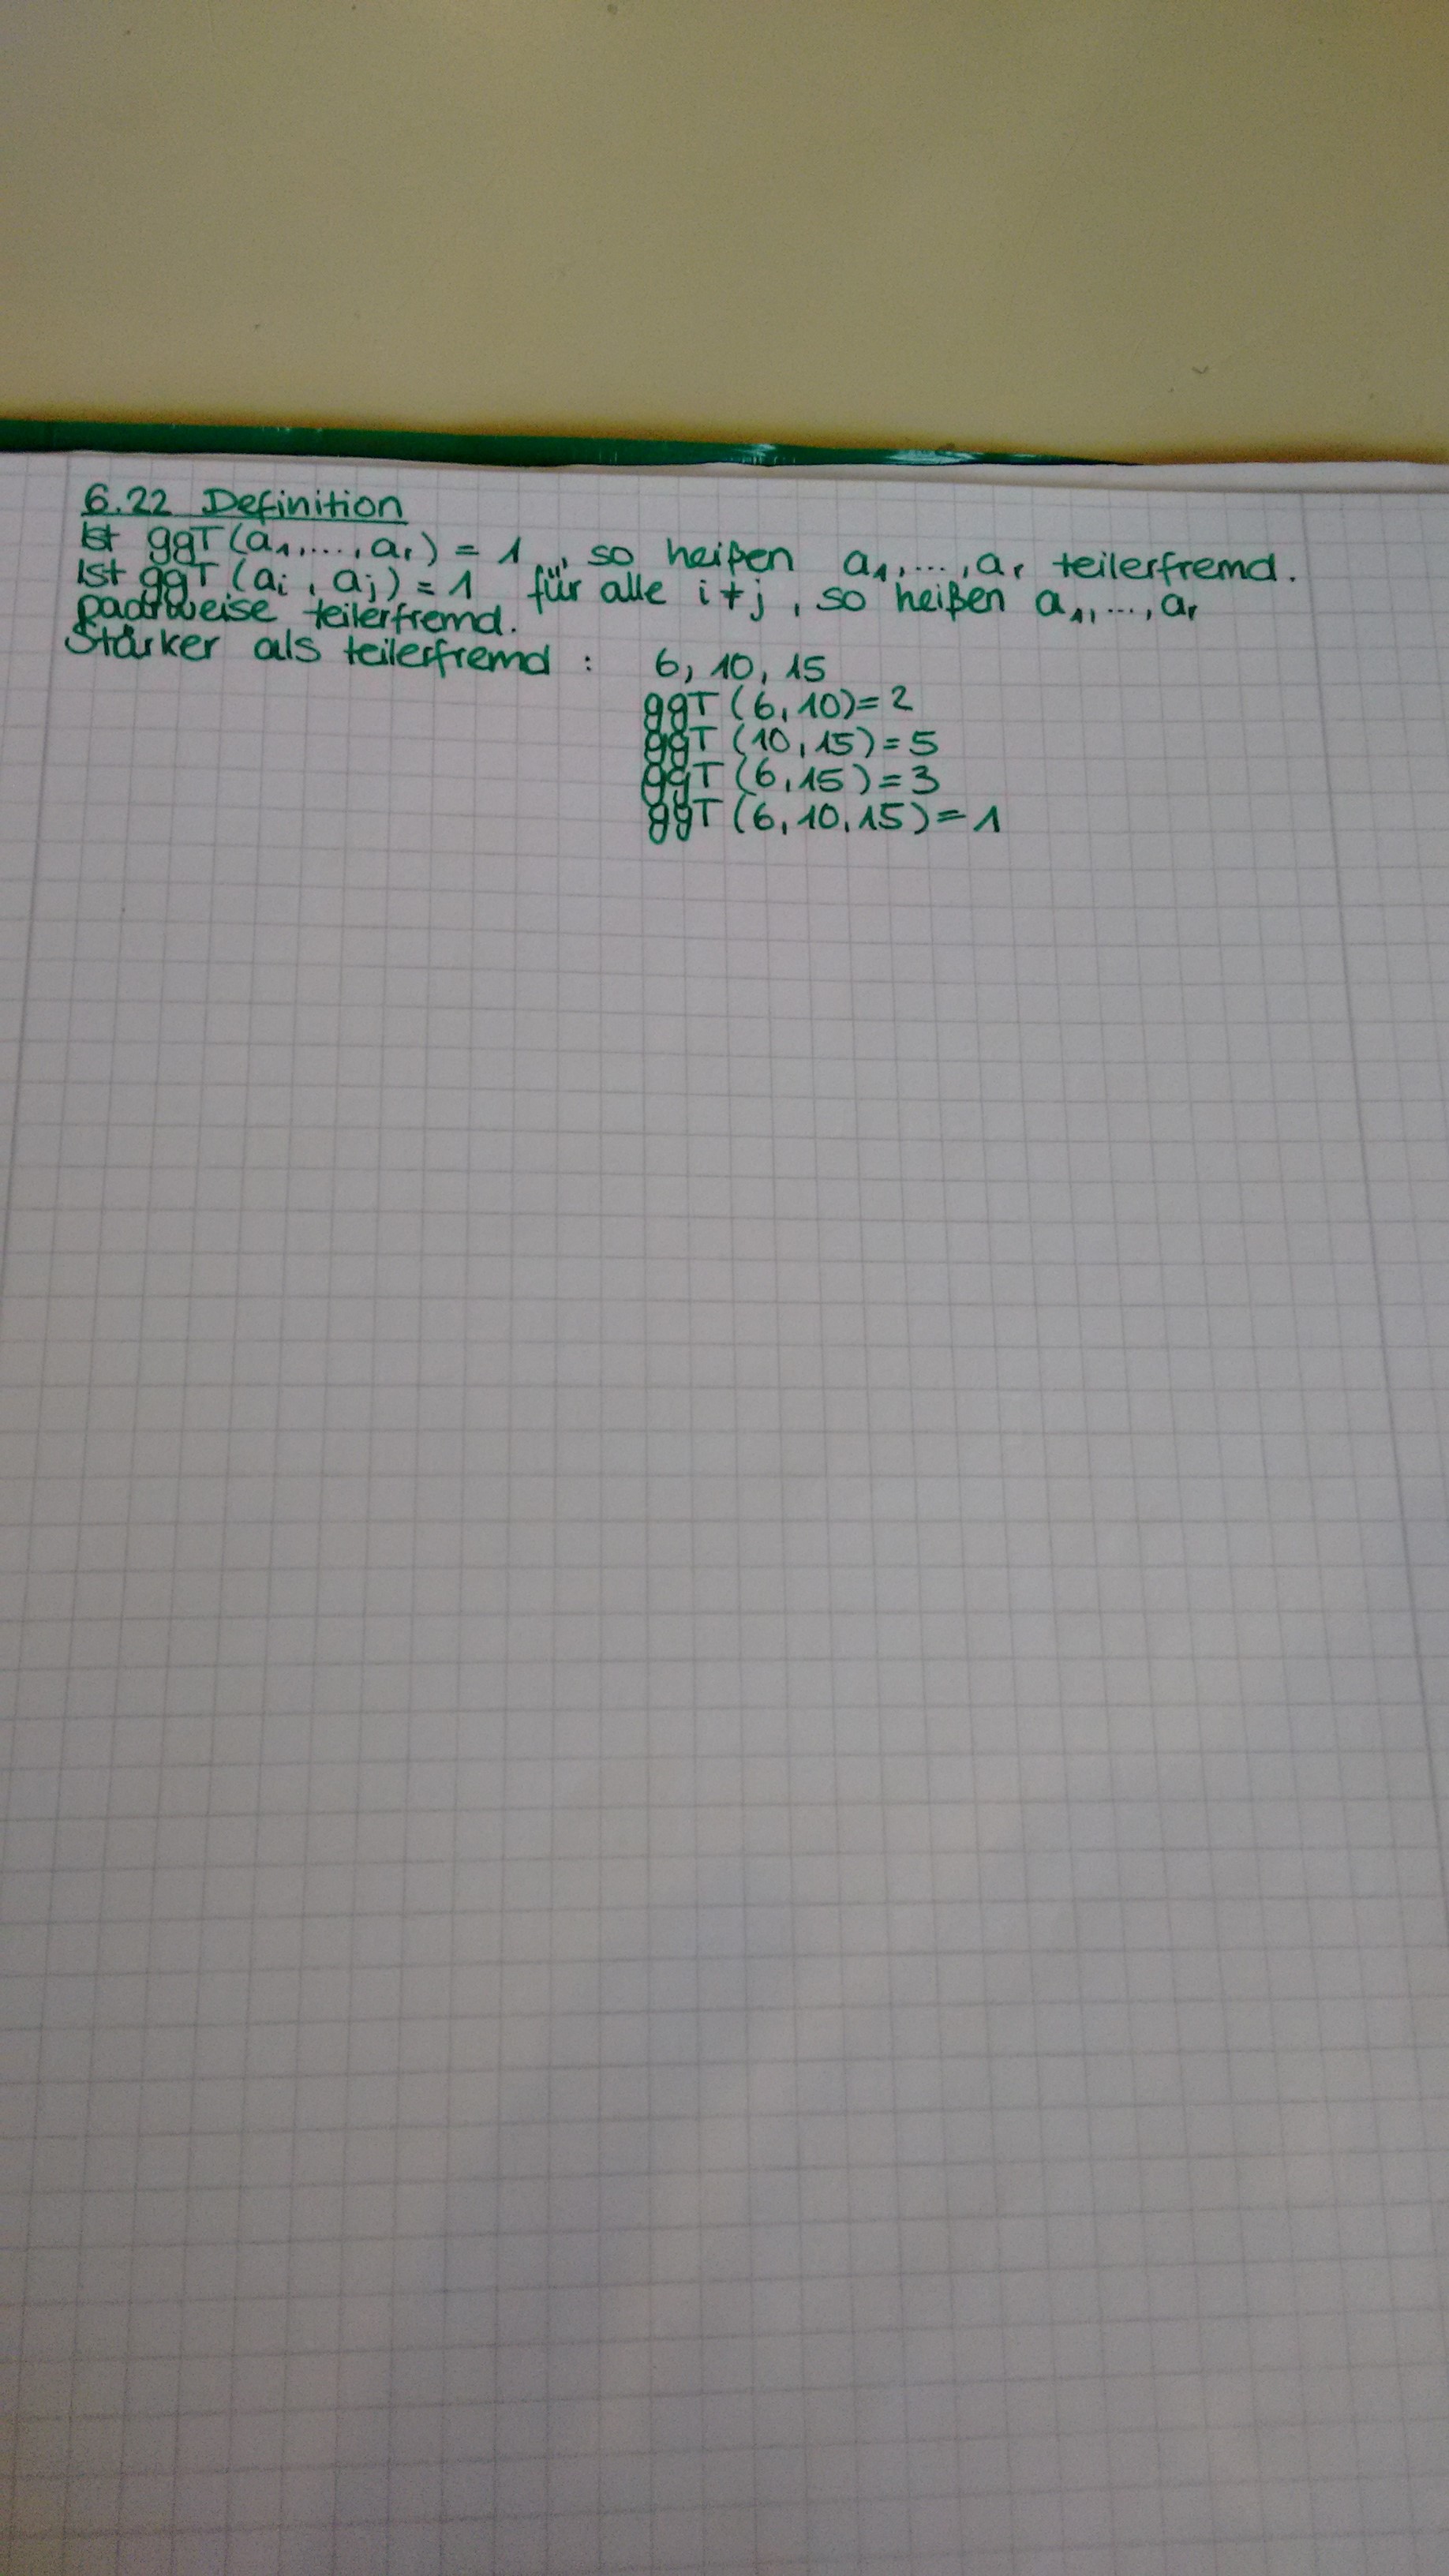 6.22 Definition
Ist ggT(a₁,...,aᵣ) = 1, so heißen a₁,...,aᵣ teilerfremd.
Ist ggT(aᵢ, aⱼ) = 1 für alle i≠j, so heißen a₁,...,aᵣ
paarweise teilerfremd.
Stärker als teilerfremd : 6, 10, 15
ggT(6,10)=2
ggT(10,15)=5
ggT(6,15)=3
ggT(6,10,15)=1